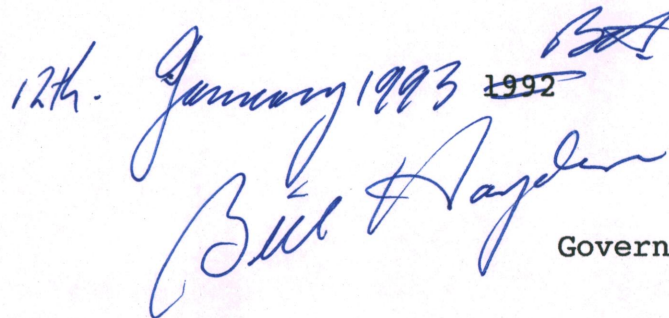 12th. January 1993 1992
Bill Hayden
Govern